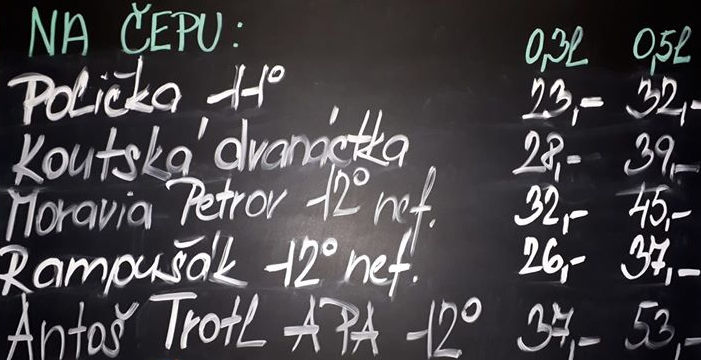 NA ČEPU: 0,3l 0,5l
Polička 11° 23,- 32,-
Koutská dvanáctka 28,- 39,-
Moravia Petrov 12° nef. 32,- 45,-
Rampušák 12° nef. 26,- 37,-
Antoš Trotl APA 12° 37,- 53,-